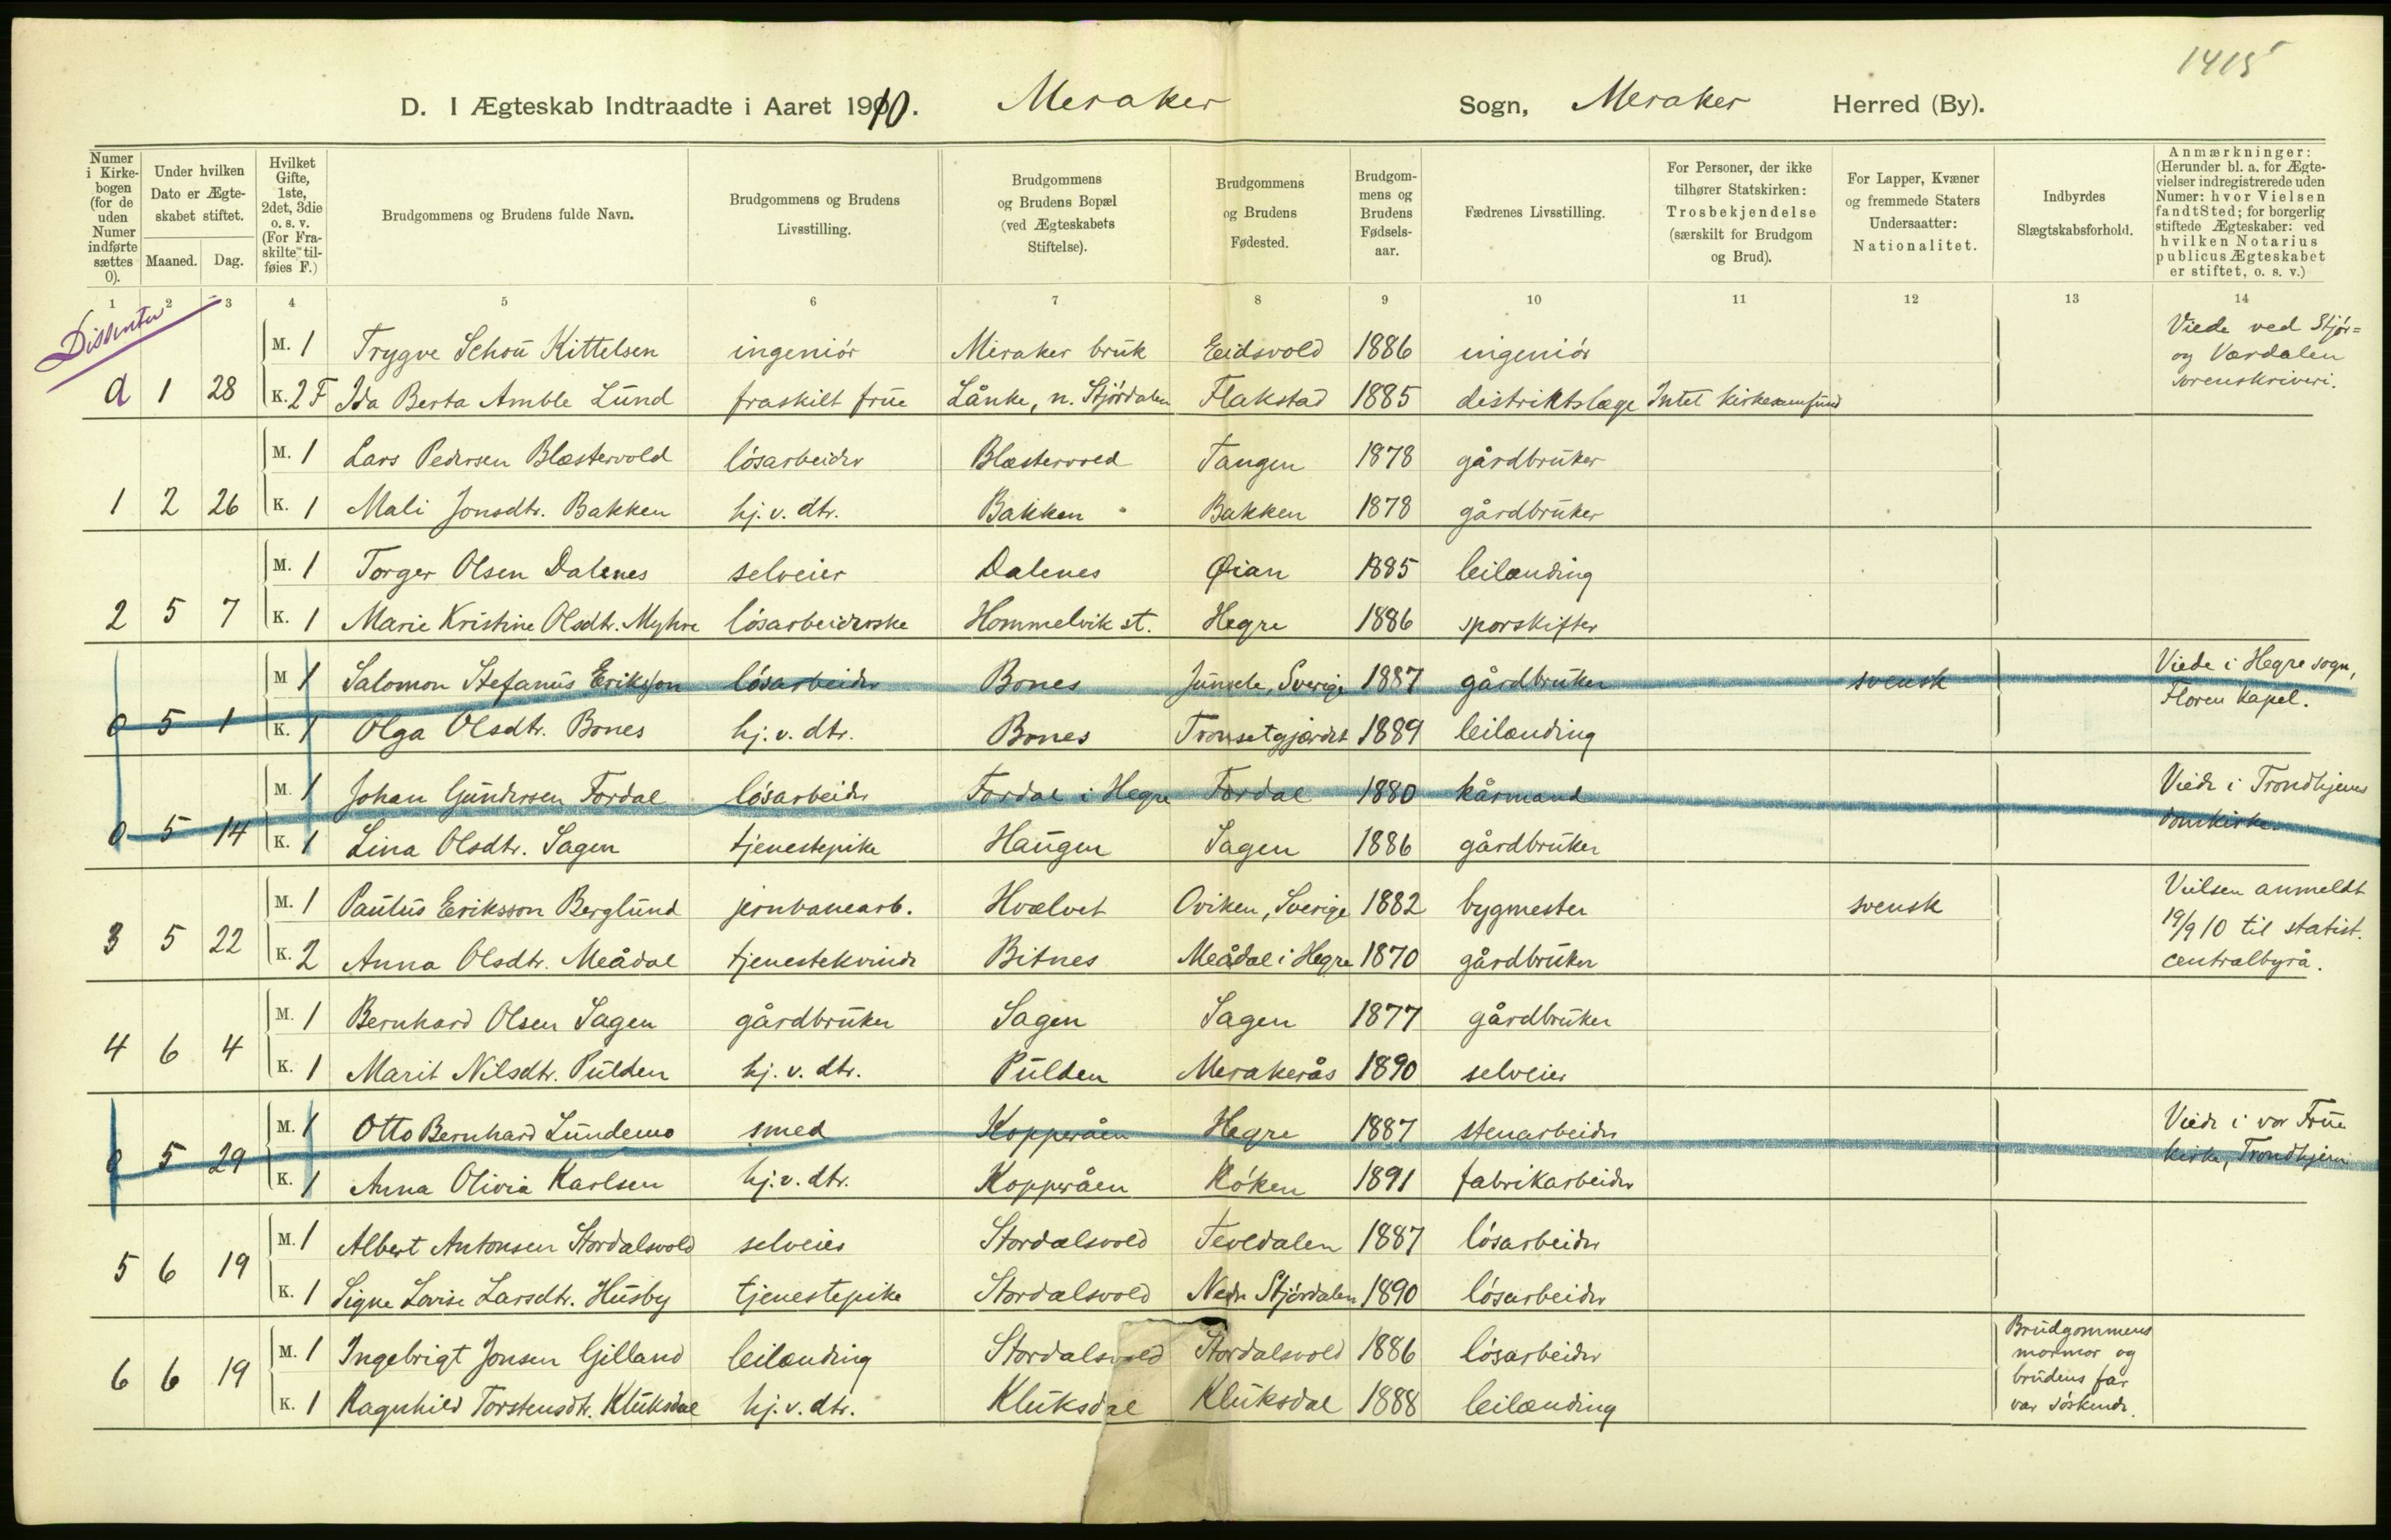 1415
D. I Ægteskab Indtraadte i Aaret 1910. Meraker Sogn, Meraker Herred (By).
Numer i Kirkebogen (for de uden Numer indførte sættes 0).
Under hvilken Dato er Ægteskabet stiftet.
Maaned. Dag.
Hvilket Gifte, 1ste, 2det, 3die o. s. v. (For Fraskilte tilføies F.)
Brudgommens og Brudens fulde Navn.
Brudgommens og Brudens Livsstilling.
Brudgommens og Brudens Bopæl (ved Ægteskabets Stiftelse).
Brudgommens og Brudens Fødested.
Brudgommens og Brudens Fødselsaar.
Fædrenes Livsstilling.
For Personer, der ikke tilhører Statskirken: Trosbekjendelse (særskilt for Brudgom og Brud).
For Lapper, Kvæner og fremmede Staters Undersaatter: Nationalitet.
Indbyrdes Slægtskabsforhold.
Anmærkninger: (Herunder bl. a. for Ægtevielser indregistrerede uden Numer: hvor Vielsen fandt Sted; for borgerlig stiftede Ægteskaber: ved hvilken Notarius publicus Ægteskabet er stiftet, o. s. v.)
1 2 3 4 5 6 7 8 9 10 11 12 13 14
Dissenter
M. 1 Trygve Schou Kittelsen ingeniør Meraker bruk Eidsvold 1886 ingeniør Viede ved Stjør= og Værdalen sorenskriveri.
d 1 28 K. 2 F Ida Berta Amble Lund fraskilt frue Lånke, n. Stjørdalen Flakstad 1885 distriktslæge Intet kirkesamfund
M. 1 Lars Pedersen Blæstervold løsarbeider Blæstervold Tangen 1878 gårdbruker
1 2 26 K. 1 Mali Jonsdtr. Bakken hj. v. dtr. Bakken Bakken 1878 gårdbruker
M. 1 Torger Olsen Dalenes selveier Dalenes Øian 1885 leilænding
2 5 7 K. 1 Marie Kristine Olsdtr. Myhre løsarbeiderske Hommelvik st. Hegre 1886 sporskifter
M 1 Salomon Stefanus Eriksson løsarbeider Bones Junsele, Sverige 1887 gårdbruker svensk Viede i Hegre sogn, Floren kapel.
0 5 1 K. 1 Olga Olsdtr. Bones hj. v. dtr. Bones Tronsetgjærdet 1889 leilænding
M. 1 Johan Gundersen Fordal løsarbeider Fordal i Hegre Fordal 1880 kårmand Viede i Trondhjems domkirke.
0 5 14 K. 1 Lina Olsdtr. Sagen tjenestepike Haugen Sagen 1886 gårdbruker
M. 1 Paulus Eriksson Berglund jernbanearb. Hvælvet Oviken, Sverige 1882 bygmester svensk Vielsen anmeldt 19/9 10 til statist. centralbyrå.
3 5 22 K. 2 Anna Olsdtr. Meådal tjenestekvinde Bitnes Meådal i Hegre 1870 gårdbruker
M. 1 Bernhard Olsen Sagen gårdbruker Sagen Sagen 1877 gårdbruker
4 6 4 K. 1 Marit Nilsdtr. Pulden hj. v. dtr. Pulden Merakerås 1890 selveier
M. 1 Otto Bernhard Lundemo smed Kopperåen Hegre 1887 stenarbeider Viede i vor Frue kirke, Trondhjem
0 5 29 K. 1 Anna Olivia Karlsen hj. v. dtr. Kopperåen Røken 1891 fabrikarbeider
M. 1 Albert Antonsen Stordalsvold selveier Stordalsvold Tevldalen 1887 løsarbeider
5 6 19 K. 1 Signe Lovise Larsdtr. Husby tjenestepike Stordalsvold Nedre Stjørdalen 1890 løsarbeider
M. 1 Ingebrigt Jonsen Gilland leilænding Stordalsvold Stordalsvold 1886 løsarbeider Brudgommens mormor og brudens far var søskende.
6 6 19 K. 1 Ragnhild Torstensdtr. Kluksdal hj. v. dtr. Kluksdal Kluksdal 1888 leilænding